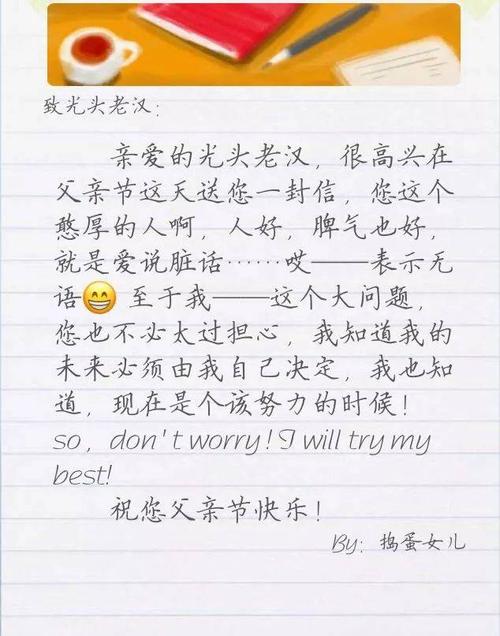 致光头老汉：
亲爱的光头老汉，很高兴在
父亲节这天送您一封信，您这个
憨厚的人啊，人好，脾气也好，
就是爱说脏话……哎——表示无
语😁 至于我——这个大问题，
您也不必太过担心，我知道我的
未来必须由我自己决定，我也知
道，现在是个该努力的时候！
so，don't worry！I will try my
best!
祝您父亲节快乐！
By：捣蛋女儿